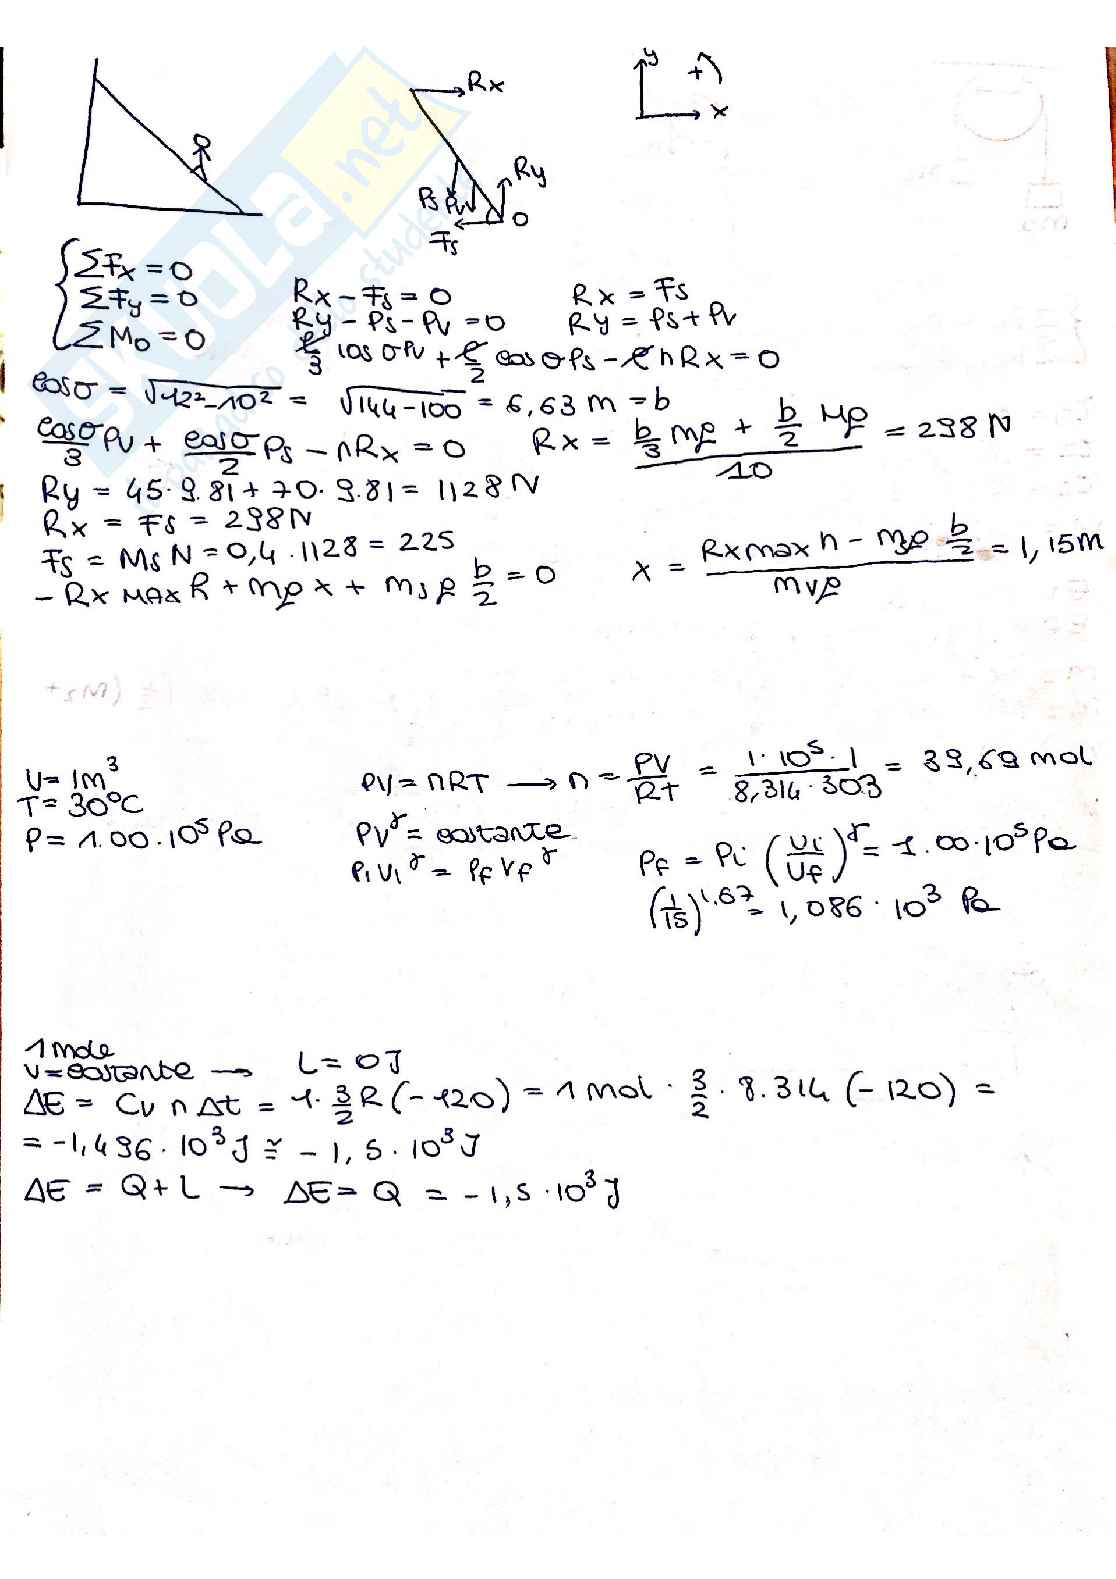 Rx
y
+
x
Ry
Ps
Pv
O
Fs
ΣFx = 0
ΣFy = 0
ΣMo = 0
Rx - Fs = 0 Rx = Fs
Ry - Ps - Pv = 0 Ry = Ps + Pv
ℓ/3 cos σ Pv + ℓ/2 cos σ Ps - ℓ h Rx = 0
cos σ = √12² - 10² = √144 - 100 = 6,63 m = b
cosσ/3 Pv + cosσ/2 Ps - h Rx = 0 Rx = (b/3 mg + b/2 Mg)/10 = 298 N
Ry = 45 · 9.81 + 70 · 9.81 = 1128 N
Rx = Fs = 298 N
Fs = Ms N = 0,4 · 1128 = 225
- Rx MAX h + mg x + ms g b/2 = 0 x = (Rx max h - msg b/2)/(mvg) = 1,15 m
V = 1m³
T = 30°C
P = 1.00 · 10⁵ Pa
PV = nRT → n = PV/RT = (1 · 10⁵ · 1)/(8,314 · 303) = 39,69 mol
PVᵞ = costante
PiViᵞ = PfVfᵞ
Pf = Pi (Vi/Vf)ᵞ = 1.00 · 10⁵ Pa
(1/15)^1,67 = 1,086 · 10³ Pa
1 mole
V = costante → L = 0 J
ΔE = Cv n Δt = 1 · 3/2 R (-120) = 1 mol · 3/2 · 8.314 (-120) =
= -1,496 · 10³ J ≅ -1,5 · 10³ J
ΔE = Q + L → ΔE = Q = -1,5 · 10³ J
SKUOLA.net